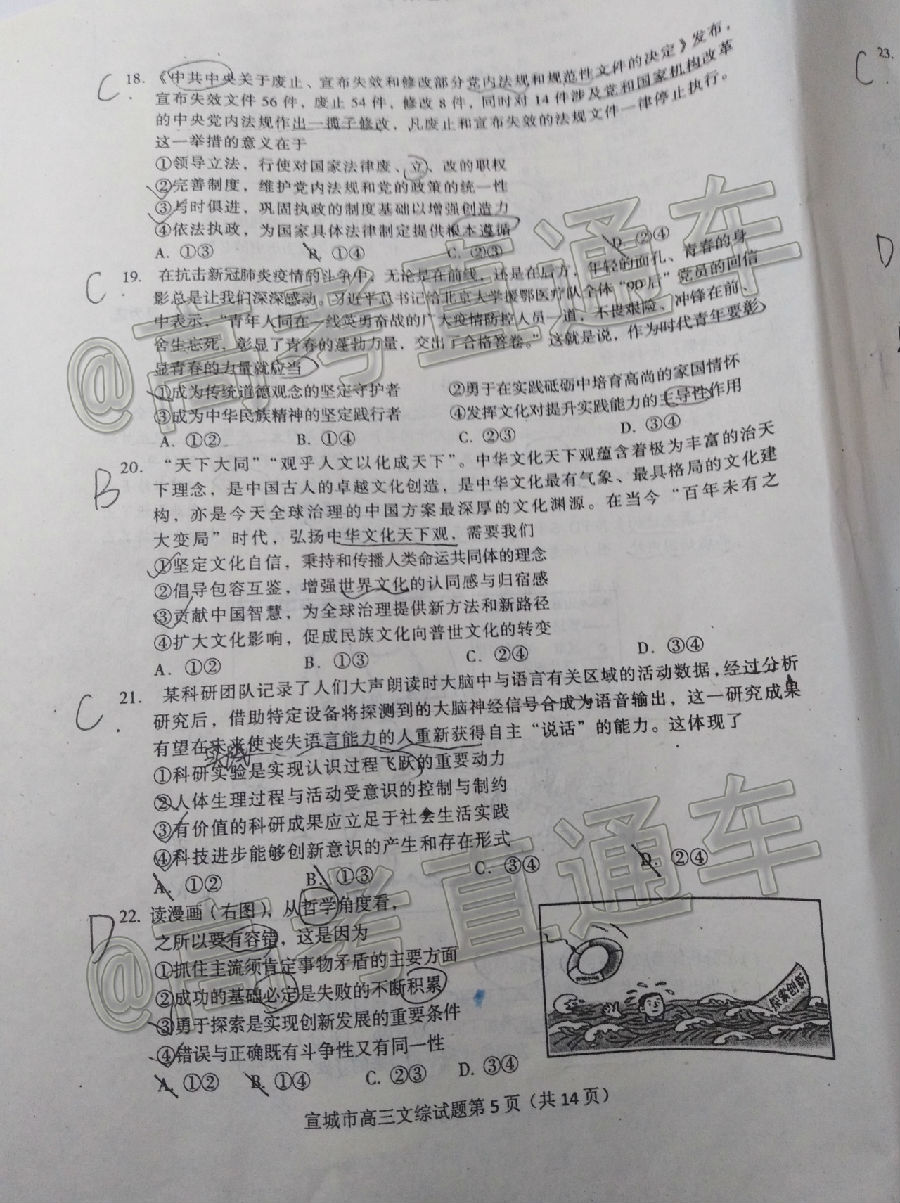 C 18. 《中共中央关于废止、宣布失效和修改部分党内法规和规范性文件的决定》发布,
宣布失效文件 56 件,废止 54 件,修改 8 件,同时对 14 件涉及党和国家机构改革
的中央党内法规作出一揽子修改,凡废止和宣布失效的法规文件一律停止执行。
这一举措的意义在于
①领导立法,行使对国家法律废、立、改的职权
②完善制度,维护党内法规和党的政策的统一性
③与时俱进,巩固执政的制度基础以增强创造力
④依法执政,为国家具体法律制定提供根本遵循
A. ①③ B. ①④ C. ②③ D. ②④
C 19. 在抗击新冠肺炎疫情的斗争中,无论是在前线,还是在后方,年轻的面孔、青春的身
影总是让我们深深感动。习近平总书记给北京大学援鄂医疗队全体“90后”党员的回信
中表示,“青年人同在一线英勇奋战的广大疫情防控人员一道,不畏艰险、冲锋在前、
舍生忘死,彰显了青春的蓬勃力量,交出了合格答卷。”这就是说,作为时代青年要彰
显青春的力量就应当
①成为传统道德观念的坚定守护者 ②勇于在实践砥砺中培育高尚的家国情怀
③成为中华民族精神的坚定践行者 ④发挥文化对提升实践能力的主导性作用
A. ①② B. ①④ C. ②③ D. ③④
B 20. “天下大同”“观乎人文以化成天下”。中华文化天下观蕴含着极为丰富的治天
下理念,是中国古人的卓越文化创造,是中华文化最有气象、最具格局的文化建
构,亦是今天全球治理的中国方案最深厚的文化渊源。在当今“百年未有之
大变局”时代,弘扬中华文化天下观,需要我们
①坚定文化自信,秉持和传播人类命运共同体的理念
②倡导包容互鉴,增强世界文化的认同感与归宿感
③贡献中国智慧,为全球治理提供新方法和新路径
④扩大文化影响,促成民族文化向普世文化的转变
A. ①② B. ①③ C. ②④ D. ③④
C 21. 某科研团队记录了人们大声朗读时大脑中与语言有关区域的活动数据,经过分析
研究后,借助特定设备将探测到的大脑神经信号合成为语音输出,这一研究成果
有望在未来使丧失语言能力的人重新获得自主“说话”的能力。这体现了
实践
①科研实验是实现认识过程飞跃的重要动力
②人体生理过程与活动受意识的控制与制约
③有价值的科研成果应立足于社会生活实践
④科技进步能够创新意识的产生和存在形式
A. ①② B. ①③ C. ③④ D. ②④
D 22. 读漫画(右图),从哲学角度看,
之所以要有容错,这是因为
①抓住主流须肯定事物矛盾的主要方面
②成功的基础必定是失败的不断积累
③勇于探索是实现创新发展的重要条件
④错误与正确既有斗争性又有同一性
A. ①② B. ①④ C. ②③ D. ③④
探索创新
宣城市高三文综试题第 5 页(共 14 页)
C 23.
D
@高考直通车
@高考直通车